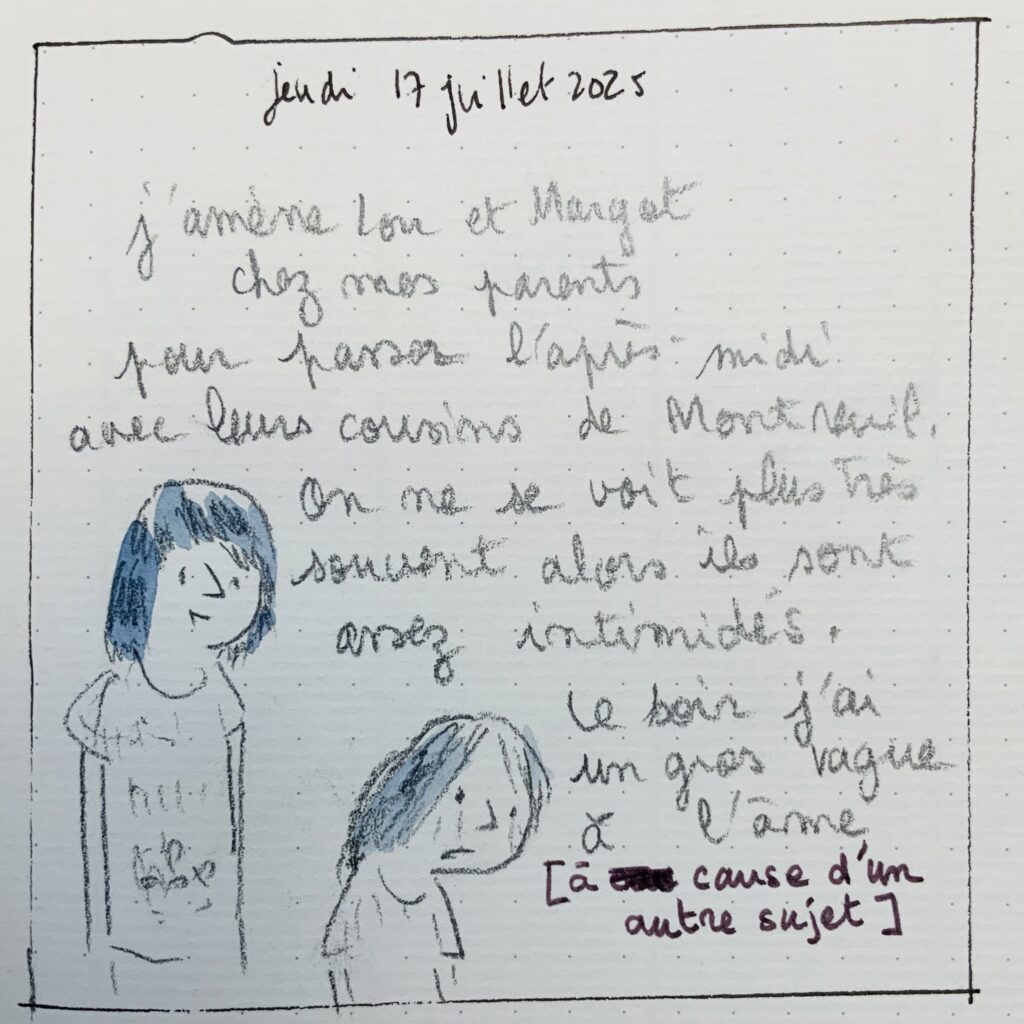 jeudi 17 juillet 2025
j'amène Lou et Margot
chez mes parents
pour passer l'après-midi
avec leurs cousins de Montreuil.
On ne se voit plus très
souvent alors ils sont
assez intimidés.
Le soir j'ai
un gros vague
à l'âme
[à cause d'un
autre sujet]